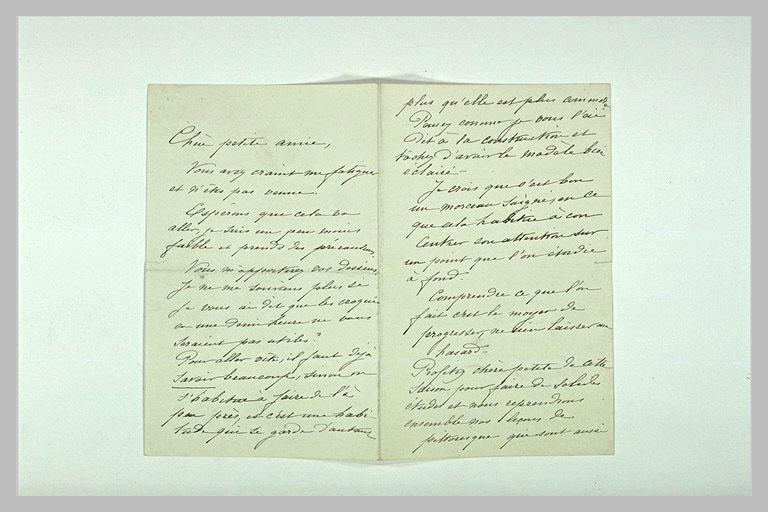 Chère petite amie,
Vous avez craint me fatiguer
et n'êtes pas venue.
Espérons que cela va
aller, je suis un peu moins
faible et prends des précautions,
Vous m'apporterez vos dessins,
je ne me souviens plus si
je vous ai dit que les croquis
en une demi heure ne vous
seraient pas utiles?
Pour aller vite, il faut déjà
savoir beaucoup, sinon on
s'habitue à faire de l'à
peu près, et c'est une habi
tude qui se garde d'autant
plus qu'elle est plus commode
Pensez comme je vous l'ai
dit à la construction et
tâchez d'avoir le modèle bien
éclairé -
Je crois que c'est bon
un morceau soigné, en ce
que cela habitue à con
centrer son attention sur
un point que l'on étudie
à fond.
Comprendre ce que l'on
fait c'est le moyen de
progresser, ne rien laisser au
hasard.
Profitez chère petite de cette
saison pour faire de solides
études et nous reprendrons
ensemble nos leçons de
pittoresque qui sont aussi